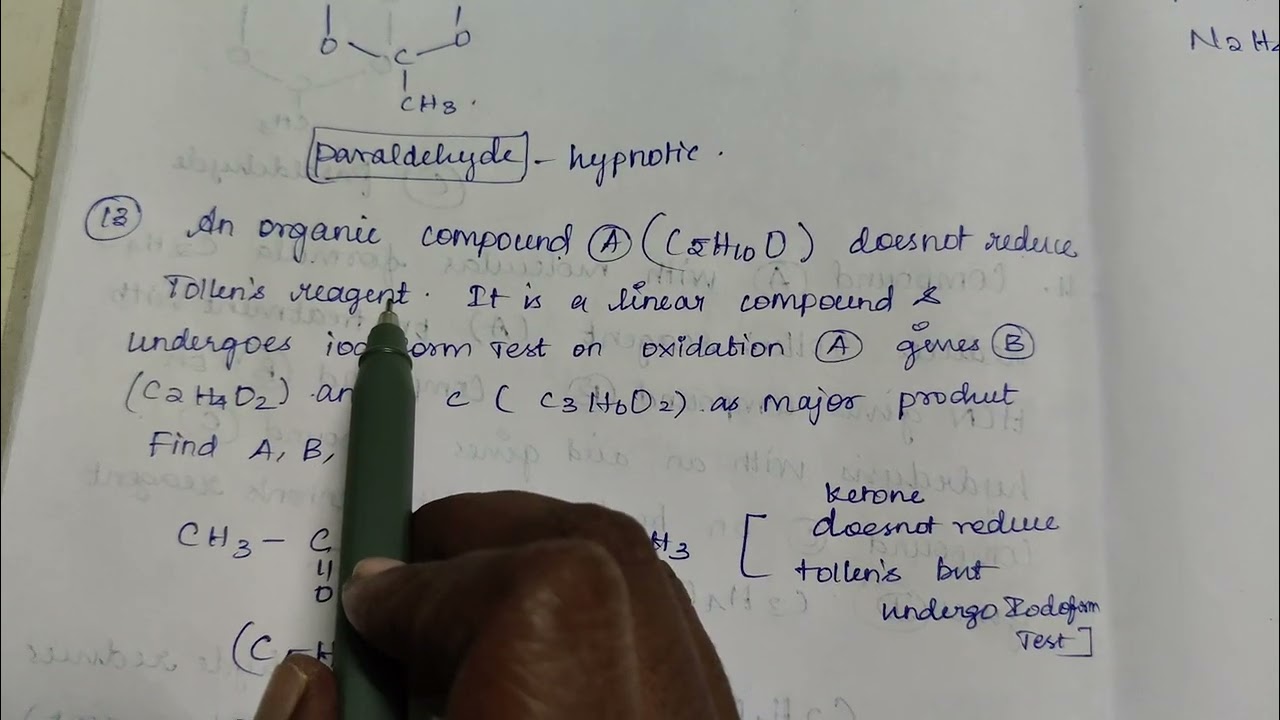 O C O
CH3.
Paraldehyde - hypnotic.
13 An organic compound A (C5H10O) doesnot reduce
Tollen's reagent. It is a linear compound &
undergoes Test on oxidation A gives B
(C2H4O2) C ( C3H6O2) as major product
Find A, B,
CH3 - C H3
O
(C - H
Ketone
doesnot reduce
tollen's but
undergo Iodoform
Test]
N2H4